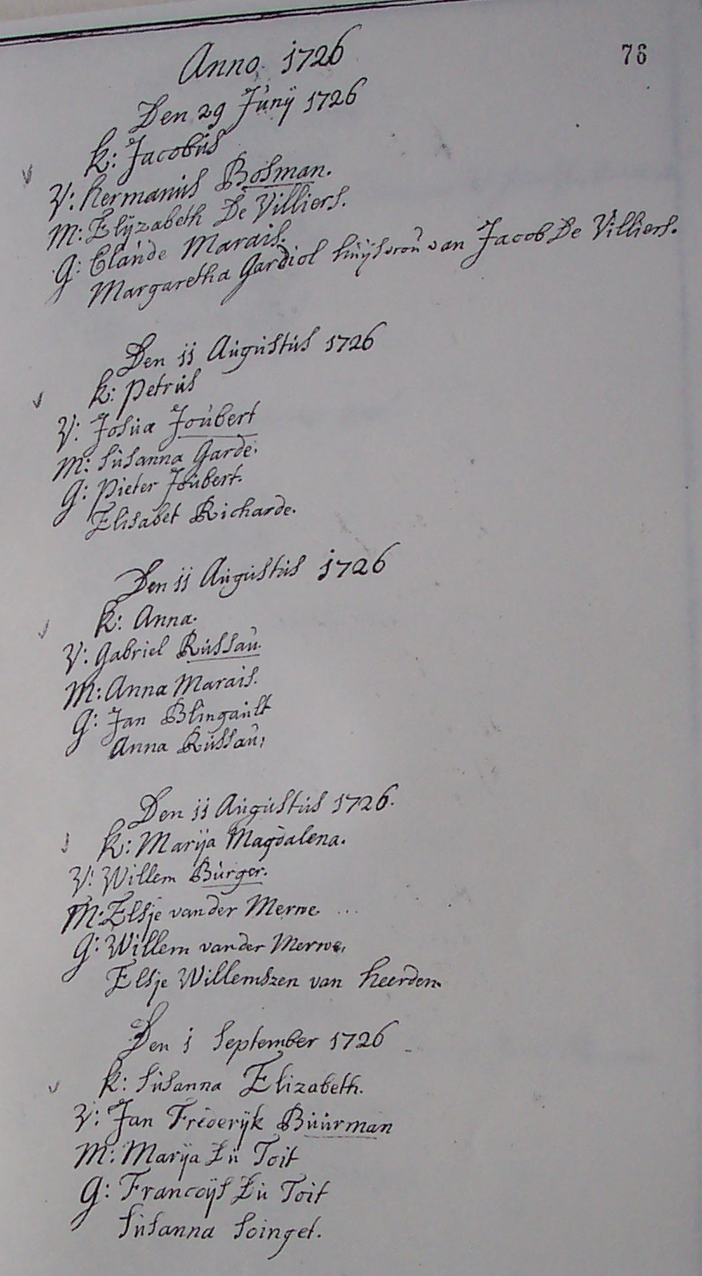 Anno 1726
76
Den 29 Junÿ 1726
K: Jacobus
V: Hermanus Bosman.
M: Elÿzabeth De Villiers.
G: Claude Marais.
Margaretha Gardiol huÿsvrou van Jacob De Villiers.
Den 11 Augustus 1726
K: Petrus
V: Josua Joubert
M: Susanna Garde.
G: Pieter Joubert.
Elisabet Richarde.
Den 11 Augustus 1726
K: Anna.
V: Gabriel Russau.
M: Anna Marais.
G: Jan Blingault
Anna Russau,
Den 11 Augustus 1726.
K: Marÿa Magdalena.
V: Willem Burger.
M: Elsje vander Merwe
G: Willem vander Merwe,
Elsje Willemszen van Heerden.
Den 1 September 1726
K: Susanna Elizabeth.
V: Jan Frederÿk Buurman
M: Marÿa Du Toit
G: Francoÿs Du Toit
Susanna Soinget.